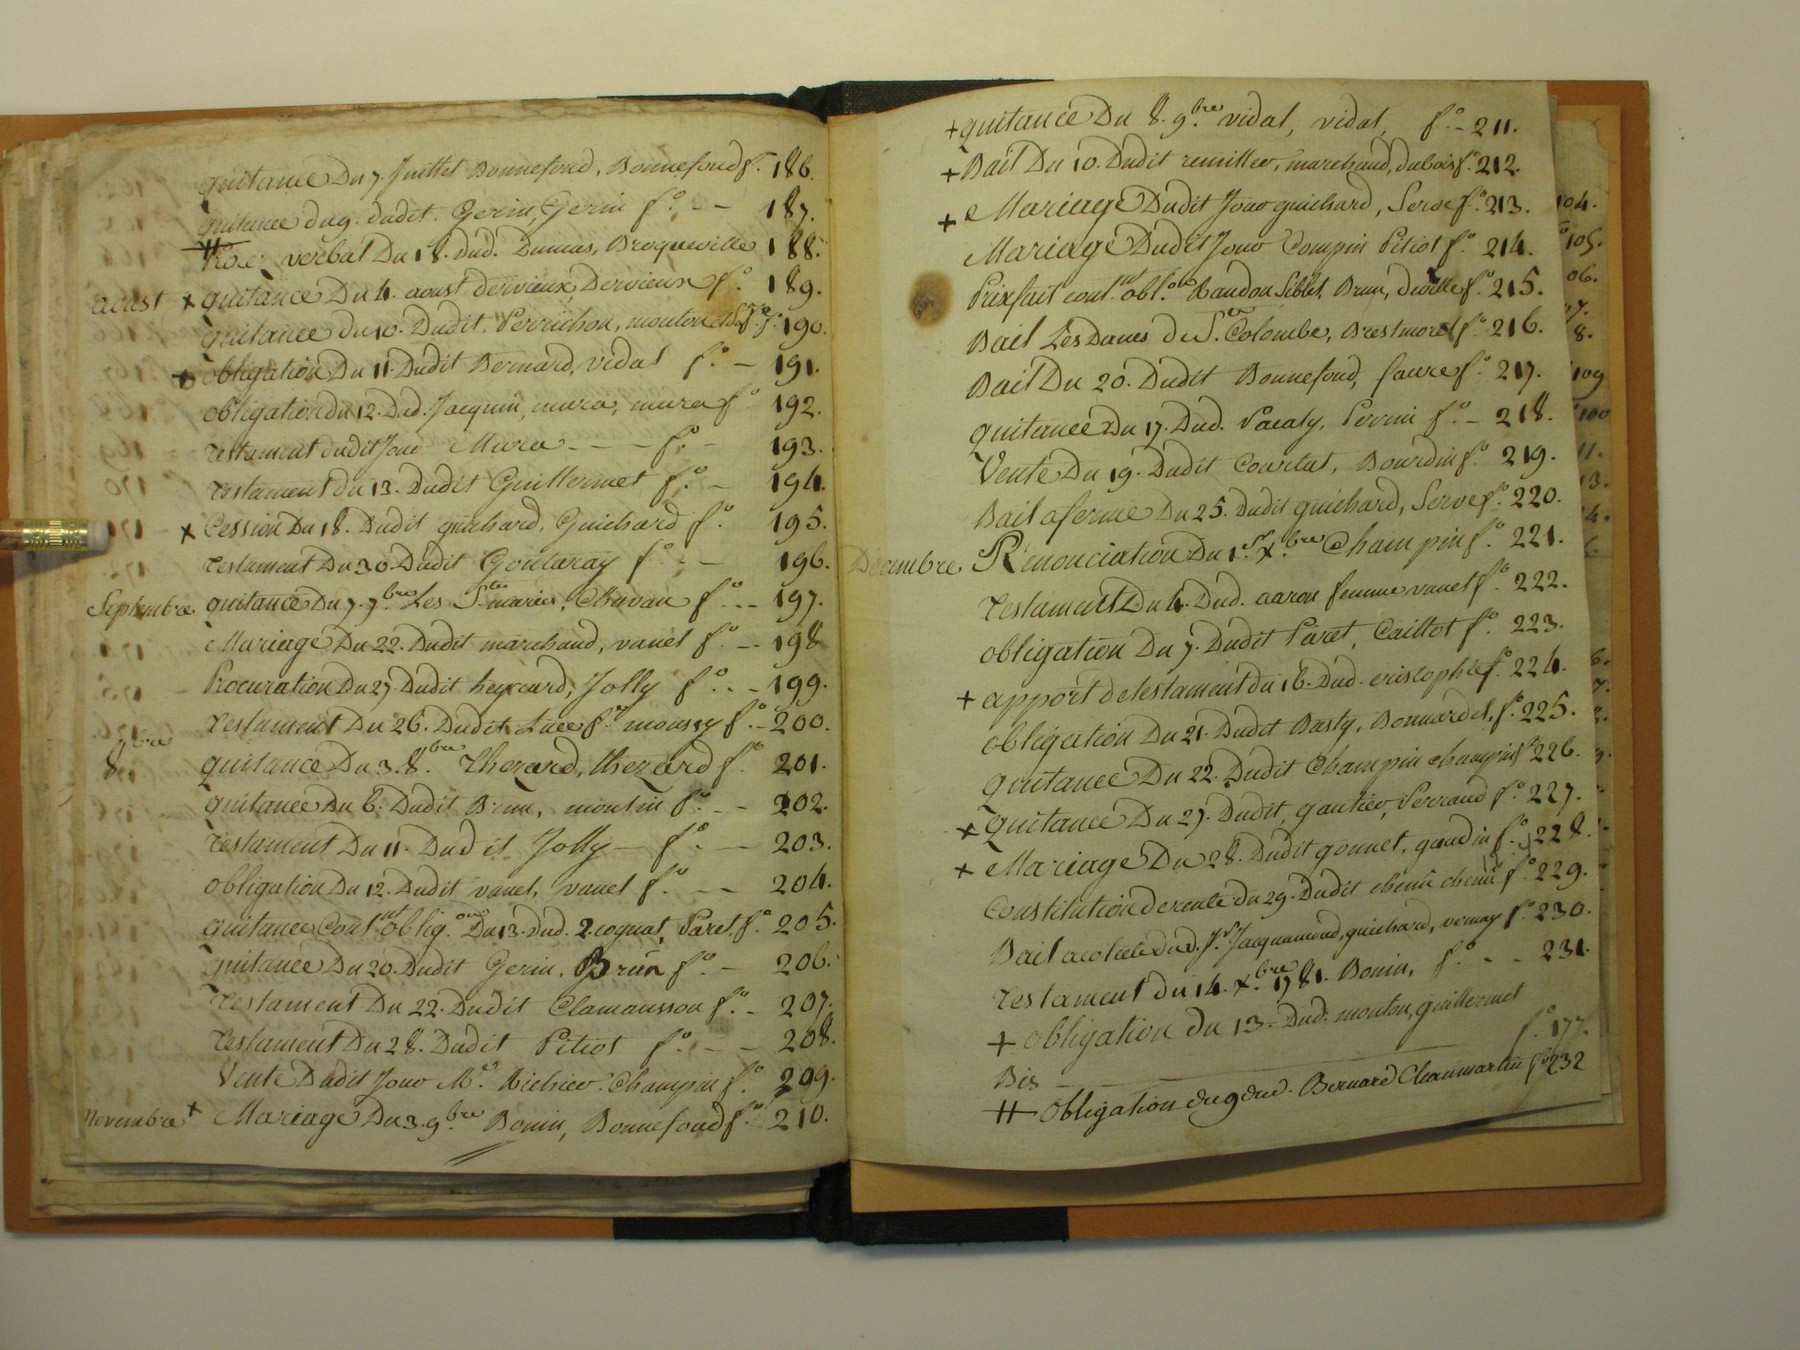 quitance Du 7. Juillet Bonnefond, Bonnefond f.° 186.
quitance du 9. dudit. Gerin, Gerin f.° -- 187.
Proc: verbal Du 18. Dud. Dumas, Broqueville 188.
aoust + quitance Du 4. aoust dervieux, Dervieux f.° 189.
quitance du 10. Dudit. Perrichon, mouton f.° 190.
+ obligation Du 11. Dudit Bernard, vidal f.° - 191.
obligation du 12. Dud. Jacquin, mura, mura f.° 192.
testament dudit Jour Mura --- f.° - 193.
testament du 13. Dudit Guillermet f.° - 194.
+ Cession Du 18. Dudit guichard, Guichard f.° 195.
testament Du 30. Dudit Goutaray f.° -- 196.
Septembre quitance Du 7. 7.bre Les S.tes maries, Chavau f.° -- 197.
Mariage Du 22. Dudit marchand, vanel f.° -- 198
Procuration Du 27. Dudit heyrard, Jolly f.° -- 199.
testament Du 26. Dudit Luce f.e mousey f.° - 200.
8.bre quitance Du 3. 8.bre Therard, therard f.° 201.
quitance Du 6. Dudit Brun, moulin f.° -- 202.
testament Du 11. Dudit Jolly - f.° -- 203.
obligation Du 12. Dudit vanel, vanel f.° -- 204.
quitance Cont.nt oblig.on Du 13. dud. 2. cognat, Paret f.° 205.
quitance Du 20. Dudit Gerin, Brun f.° - 206.
testament Du 22. Dudit Clamausson f.° - 207.
testament Du 28. Dudit Pitiot f.° -- 208.
Vente Dudit Jour M.e Richier. Champin f.° 209.
Novembre + Mariage Du 3. 9.bre Bonin, Bonnefond f.° 210.
+ quitance Du 8. 9.bre vidal, vidal, f.° - 211.
+ Bail Du 10. Dudit remillier, marchand, dubois f.° 212.
+ Mariage Dudit Jour guichard, Serve f.° 213.
Mariage Dudit Jour Compin Pitiot f.° 214.
Prixfait cont.nt obl.on Baudon Siblet, Brun, deville f.° 215.
Bail Les Dames de S.te Colombe, Brestmorel f.° 216.
Bail Du 20. Dudit Bonnefond, faure f.° 217.
quitance Du 17. Dud. Pacaly, Perrin f.° - 218.
Vente Du 19. Dudit Courtat, Bourdin f.° 219.
Bail aferme Du 25. Dudit guichard, Serve f.° 220.
Decembre Renonciation Du 1.er X.bre Champin f.° 221.
testament Du 4. Dud. aaron femme vanel f.° 222.
obligation Du 7. Dudit Paret, Caillot f.° 223.
+ apport de testament du 16. Dud. cristophle f.° 224.
obligation Du 21. Dudit Basty, Bonnardel, f.° 225.
quitance Du 22. Dudit Champin champin f.° 226.
+ quitance Du 27. Dudit, gautier, Perraud f.° 227.
+ Mariage Du 28. Dudit gonnet, gaudin f.° 228.
Constitution de rente du 29. Dudit chenu chenu f.° 229.
Bail acolué dud. J.r Jacquemond, guichard, vernay f.° 230.
testament du 14. X.bre 1781. Bonin, f.° -- 231.
+ obligation du 13. Dud. mouton, guillermet
Bis f.° 177.
++ obligation du 9 dud. Bernard Chaumartin f.° 232
104.
105.
06.
7.
8.
109
100
11.
13.